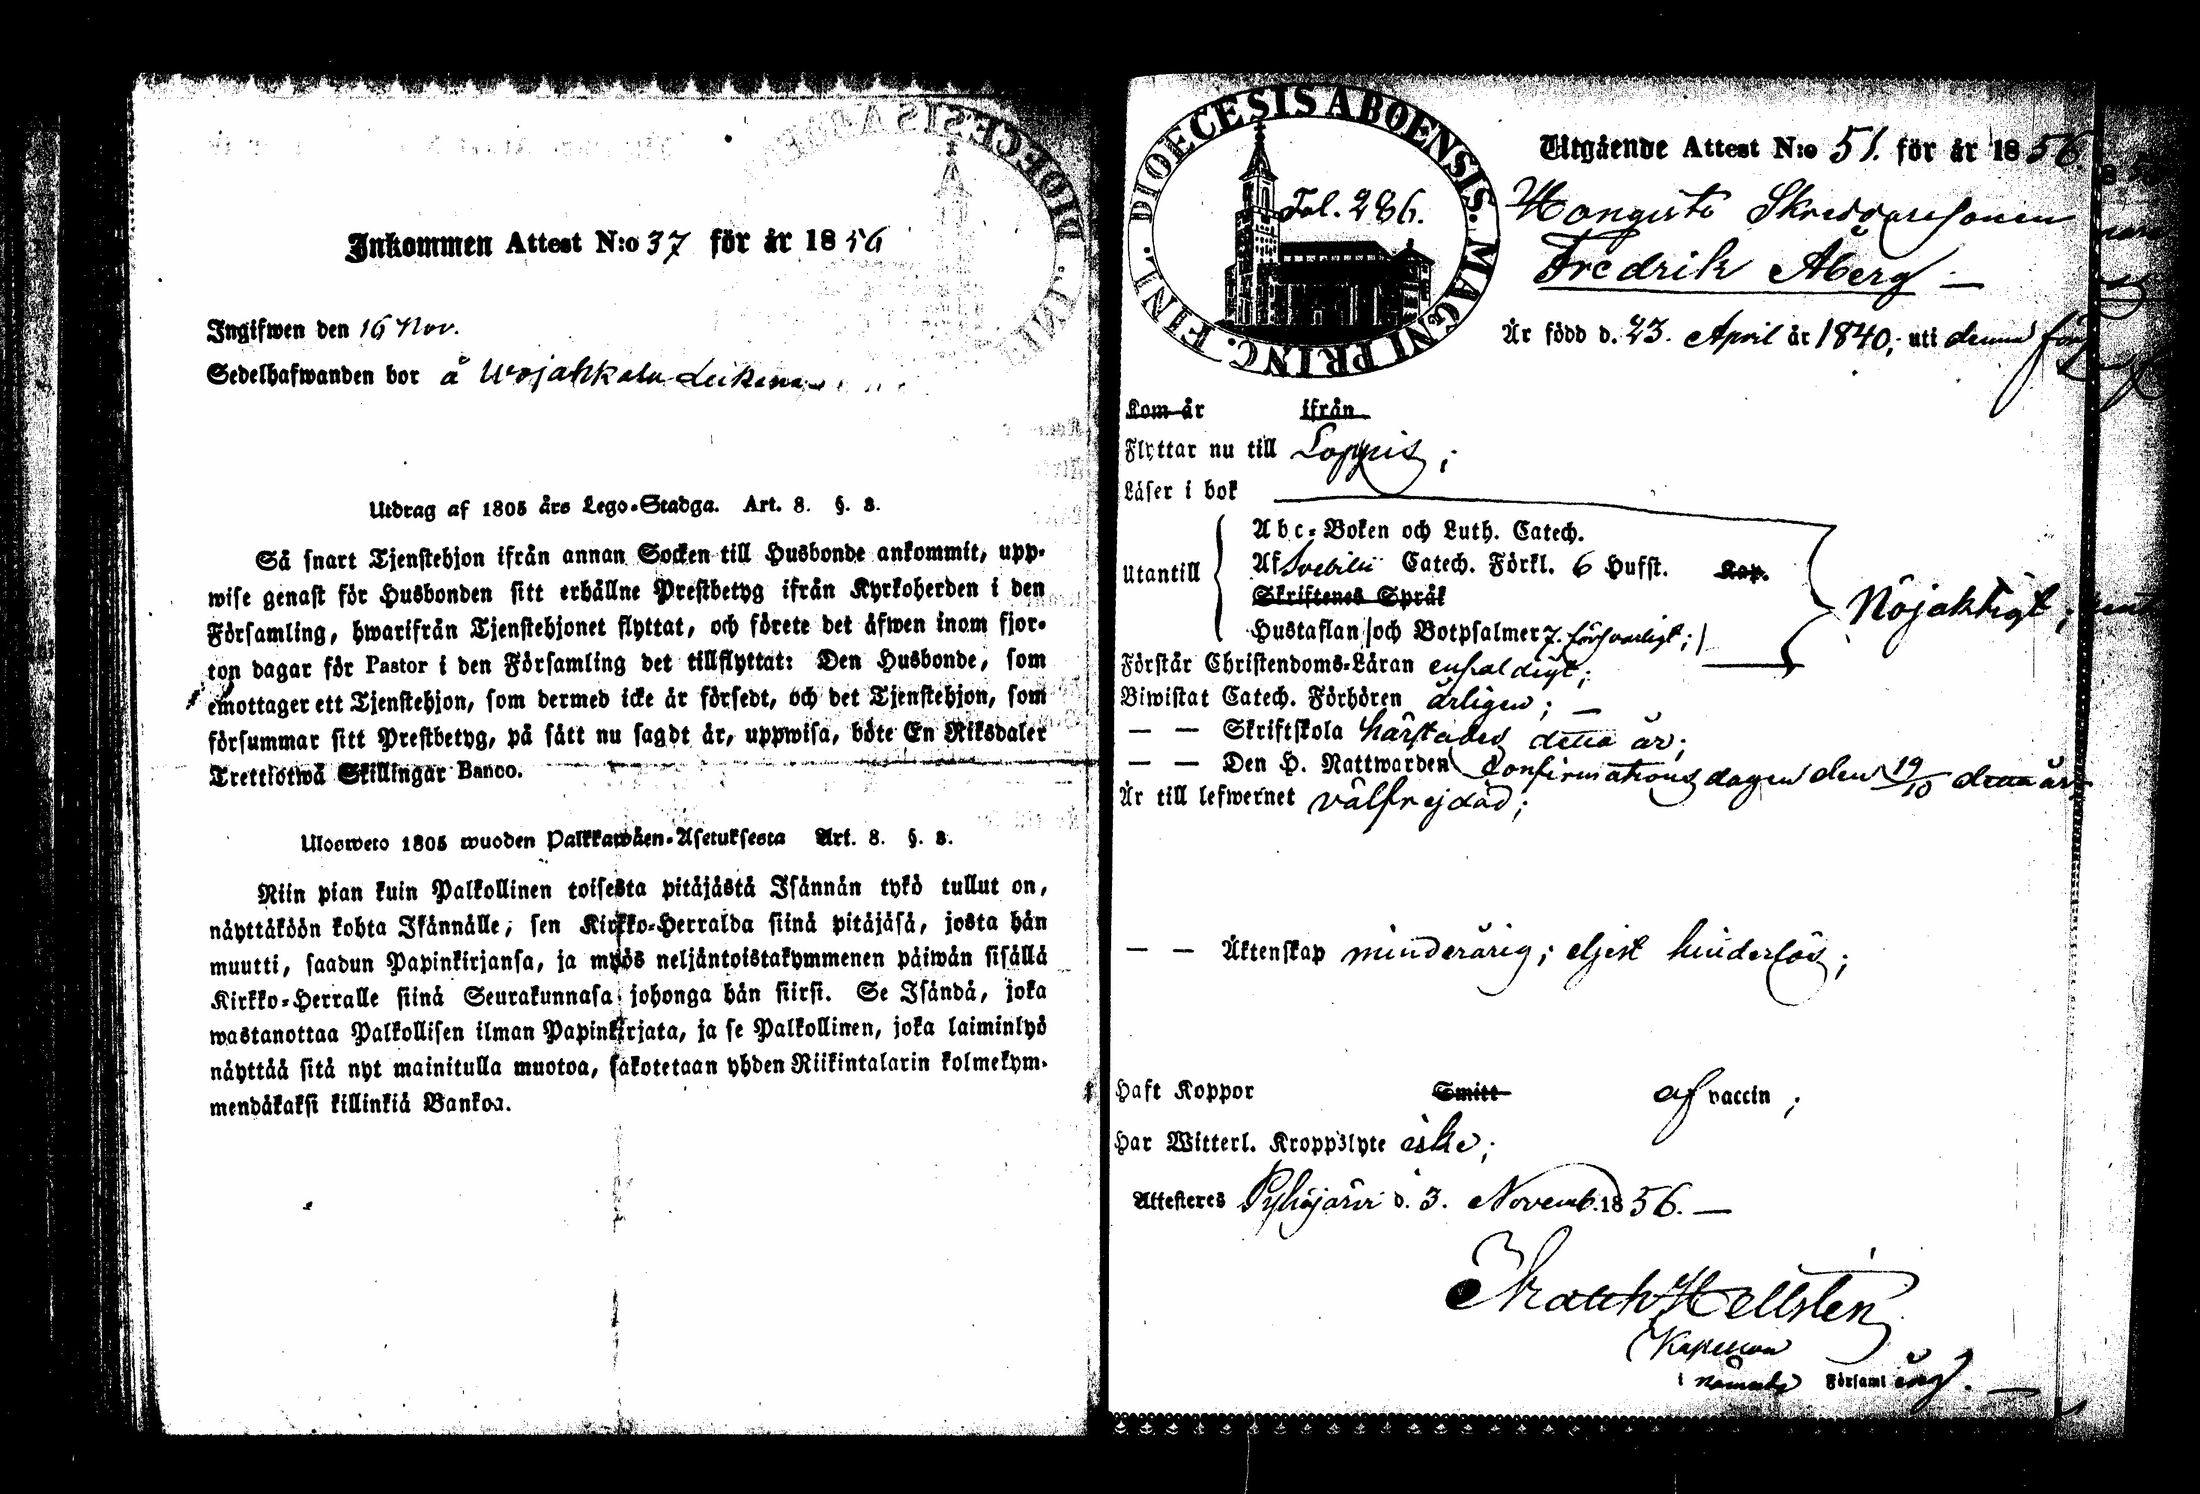 Inkommen Attest N:o 37 för år 1856
Ingifwen den 16 Nov.
Sedelhafwanden bor å Wojakkala
Utdrag af 1805 års Lego-Stadga. Art. 8. §. 3.
Så snart Tjenstehjon ifrån annan Socken till Husbonde ankommit, upp-
wise genast för Husbonden sitt erhållne Prestbetyg ifrån Kyrkoherden i den
Församling, hwarifrån Tjenstehjonet flyttat, och förete det äfwen inom fjor-
ton dagar för Pastor i den Församling det tillflyttat: Den Husbonde, som
emottager ett Tjenstehjon, som dermed icke är försedt, och det Tjenstehjon, som
försummar sitt Prestbetyg, på sätt nu sagdt är, uppwisa, böte En Riksdaler
Trettiotwå Skillingar Banco.
Ulosweto 1805 wuoden Palkkawäen-Asetuksesta Art. 8. §. 3.
Niin pian kuin Palkollinen toisesta pitäjästä Isännän tykö tullut on,
näyttäköön kohta Isännälle, sen Kirkko-Herralda siinä pitäjäsä, josta hän
muutti, saadun Papinkirjansa, ja myös neljäntoistakymmenen päiwän sisällä
Kirkko-Herralle siinä Seurakunnasa johonga hän siirsi. Se Isändä, joka
wastanottaa Palkollisen ilman Papinkirjata, ja se Palkollinen, joka laiminlyö
näyttää sitä nyt mainitulla muotoa, sakotetaan yhden Riikintalarin kolmekym-
mendäkaksi killinkiä Bankoa.
DIOECESIS ABOENSIS. MAGNI PRINC. FINL.
Fol. 286.
Utgående Attest N:o 51. för år 1856.
Hongisto Skreddaresonen
Fredrik Åberg —
Är född d. 23. April år 1840; uti denna för
Kom år ifrån
Flyttar nu till Loppis;
Läser i bok
Utantill
Abc-Boken och Luth. Catech.
Af Svebilii Catech. Förkl. 6 Hufst. Kap.
Skriftenes Språk
Hustaflan /och Botpsalmer 7. försvarligt;/
Nöjaktigt;
Förstår Christendoms-Läran enfaldigt;
Biwistat Catech. Förhören årligen; —
— — Skriftskola härstädes detta år;
— — Den H. Nattwarden Confirmations dagen den 19/10 detta år;
Är till lefwernet välfrejdad;
— — Äktenskap minderårig; eljest hinderlös;
Haft Koppor Smitt af vaccin;
Har Witterl. Kroppslyte icke;
Attesteres Pyhäjärvi d. 3. Novemb. 1856. —
Hellsten
Kapellan
i Församl